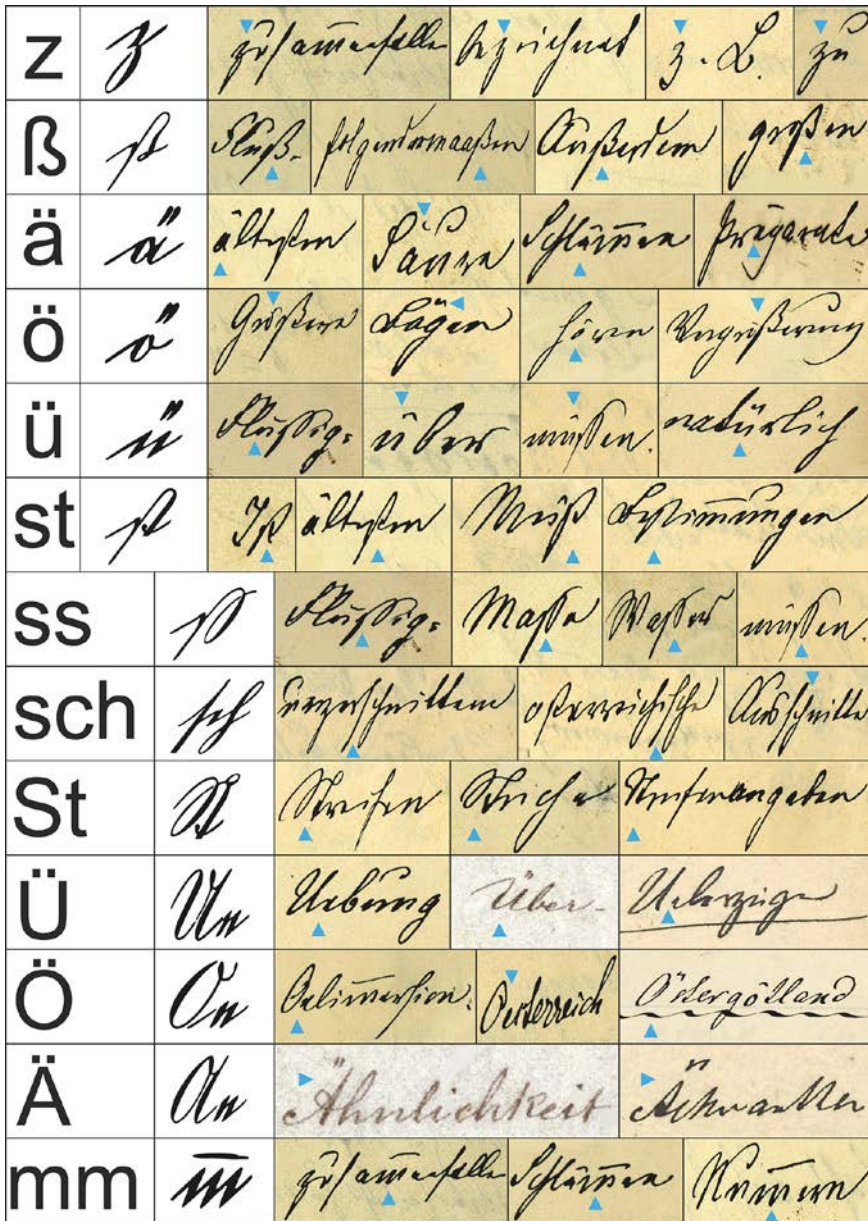 z z zusam̅enfallen bezeichnet z. B. zu
ß ß Fluß- folgendermaaßen Außerdem großen
ä ä ältesten Säure Schläm̅en Präparate
ö ö Größere Bögen hören Vergrößerung
ü ü Flüssig= über müssen. natürlich
st st Ist ältesten Mußt Bestimmungen
ss ss Flüssig= Masse Wasser müssen.
sch sch unzerschnittenem österreichische Ausschnitte
St St Streifen Striche Streifenangaben
Ü Ue Uebung Über- Ueberzüge
Ö Oe Oelim̅ersion. Oesterreich Östergötland
Ä Ae Ähnlichkeit
mm m̅ zusam̅enfallen Schläm̅en Num̅ern